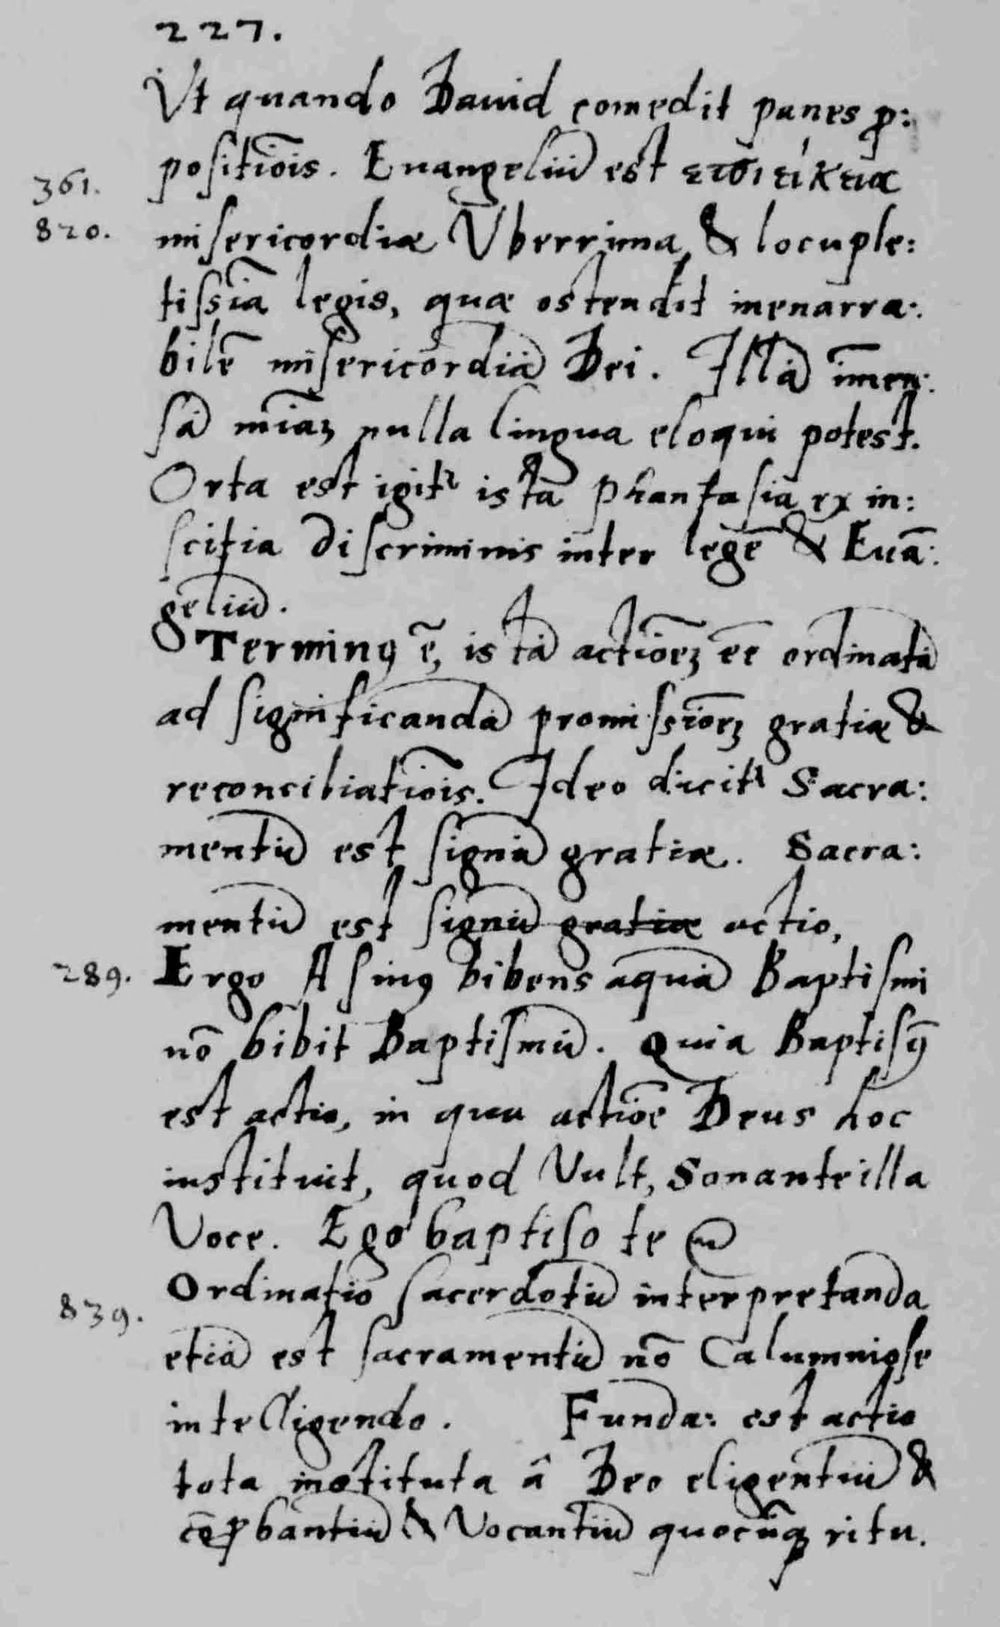 227.
Vt quando Dauid comedit panes ꝓ:
positiōis. Euangeliū est ἐπιείκεια
361.
820.
misericordiæ Vberrima & locuple:
tissīa legis, quæ ostendit inenarra:
bilē misericordiā Dei. Illā īmen:
sā mīaꝫ nulla lingua eloqui potest.
Orta est igitʳ ista Phantasia ex in:
scitia discriminis inter legē & Euā:
geliū.
Terminꝰ ē, istā actiōeꝫ eē ordinatā
ad significandā promissiōeꝫ gratiæ &
reconciliatiōis. Ideo dicitʳ Sacra:
mentū est signū gratiæ. Sacra:
mentū est signū gratiæ actio,
289. Ergo Asinꝰ bibens aquā Baptismi
nō bibit Baptismū. Quia Baptismꝰ
est actio, in qua actiōe Deus hoc
instituit, quod Vult, Sonante illa
Voce. Ego baptiso te
839. Ordinatio sacerdotū interpretanda
etiā est sacramentū nō Calumniose
intelligendo. Funda: est actio
tota instituta â Deo eligentiū &
cōꝓbantiū & Vocantiū quocūqꝫ ritu.